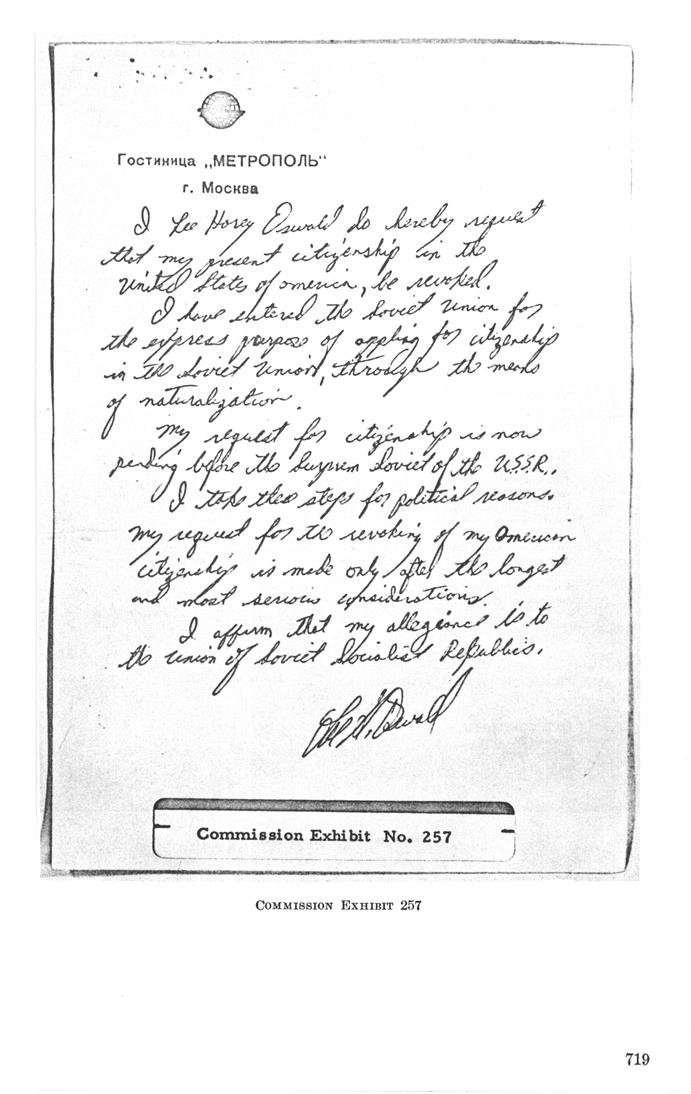 Гостиница „МЕТРОПОЛЬ“
г. Москва
I Lee Harey Oswald do hereby request
that my present citizenship in the
United States of america, be revoked.
I have entered the Soviet Union for
the express purpose of appling for citizenship
in the Soviet Union, through the means
of naturalization.
My request for citizenship is now
pending before the Suprem Soviet of the U.S.S.R..
I take these steps for political reasons.
My request for the revoking of my American
citizenship is made only after the longest
and most serious considerations.
I affirm that my allegiance is to
the Union of Soviet Socialist Republics.
Lee H. Oswald
Commission Exhibit No. 257
COMMISSION EXHIBIT 257
719